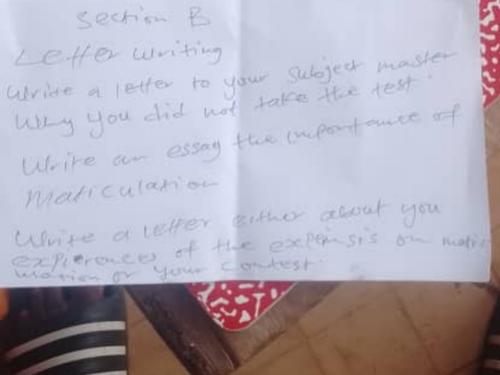 Section B
Letter writing
Write a letter to your subject master
Why you did not take the test.
Write an essay the importance of
maticulation
Write a letter either about you
expierences of the expensis on matic
mation or your contest.